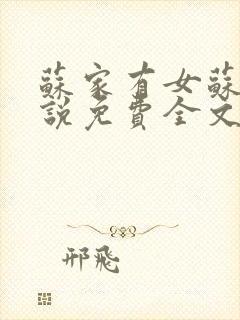 蘇家有女蘇
說免費全文
邢飛